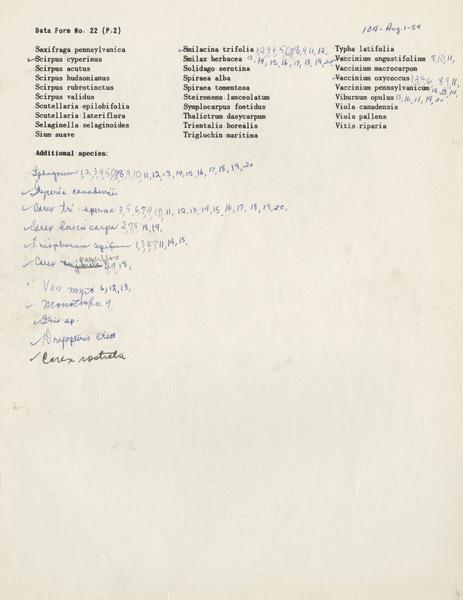 Data Form No. 22 (P.2)
Saxifraga pennsylvanica
Scirpus cyperinus
Scirpus acutus
Scirpus hudsonianus
Scirpus rubrotinctus
Scirpus validus
Scutellaria epilobifolia
Scutellaria lateriflora
Selaginella selaginoides
Sium suave
Smilacina trifolia 1,2,3,4,5,6,7,8,9,10,11,12,
Smilax herbacea 13,14,15,16,17,18,19,20
Solidago serotina
Spiraea alba
Spiraea tomentosa
Steironema lanceolatum
Symplocarpus foetidus
Thalictrum dasycarpum
Trientalis borealis
Triglochin maritima
Typha latifolia
Vaccinium angustifolium 8,10,11,
Vaccinium macrocarpon
Vaccinium oxycoccus 1,3,4,6 8,9,11,
Vaccinium pennsylvanicum 12,13,14,
Viburnum opulus 15,16,18,19,20
Viola canadensis
Viola pallens
Vitis riparia
Additional species:
Sphagnum 1,2,3,4,5,6,7,8,9,10,11,12,13,14,15,16,17,18,19,20
Carex tri-sperma 3,5,6,7,9,10,11,12,13,14,15,16,17,18,19,20,
Carex lasiocarpa 2,7,8,18,19,
Eriophorum spissum 1,3,4,7,11,14,15.
Carex
6,12,13,
9,
Iris sp.
Dryopteris crist
Carex rostrata